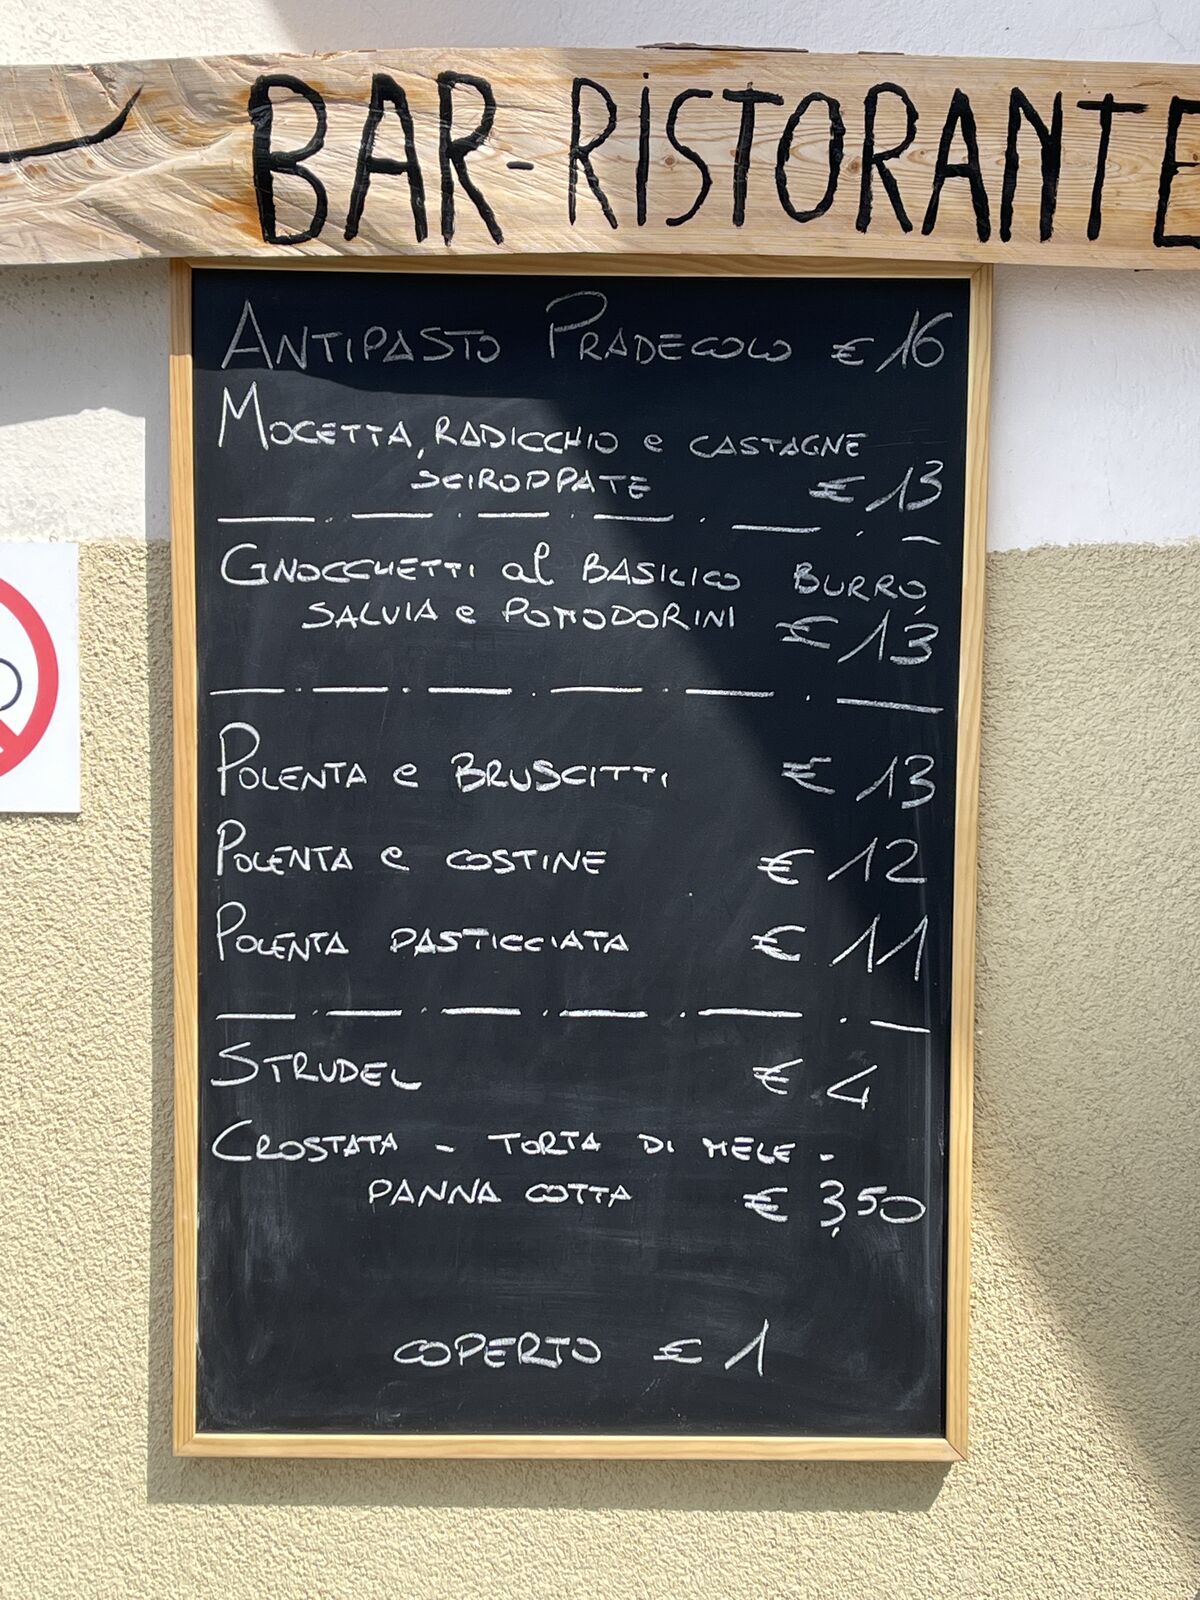 BAR-RISTORANTE
ANTIPASTO PRADECOLO € 16
MOCETTA, RADICCHIO e CASTAGNE
SCIROPPATE € 13
GNOCCHETTI al BASILICO BURRO,
SALVIA e POMODORINI € 13
POLENTA e BRUSCITTI € 13
POLENTA e COSTINE € 12
POLENTA PASTICCIATA € 11
STRUDEL € 4
CROSTATA - TORTA DI MELE -
PANNA COTTA € 3,50
COPERTO € 1